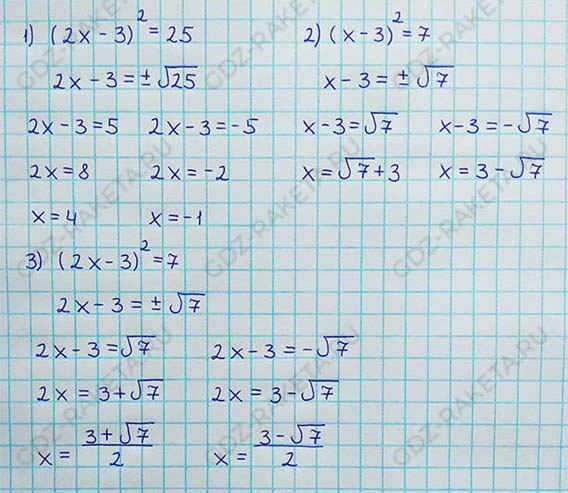 1) (2x - 3)² = 25
2x - 3 = ± √25
2x - 3 = 5 2x - 3 = -5
2x = 8 2x = -2
x = 4 x = -1
2) (x - 3)² = 7
x - 3 = ± √7
x - 3 = √7 x - 3 = -√7
x = √7 + 3 x = 3 - √7
3) (2x - 3)² = 7
2x - 3 = ± √7
2x - 3 = √7 2x - 3 = -√7
2x = 3 + √7 2x = 3 - √7
x = (3 + √7)/2 x = (3 - √7)/2
GDZ-RAKETA.RU